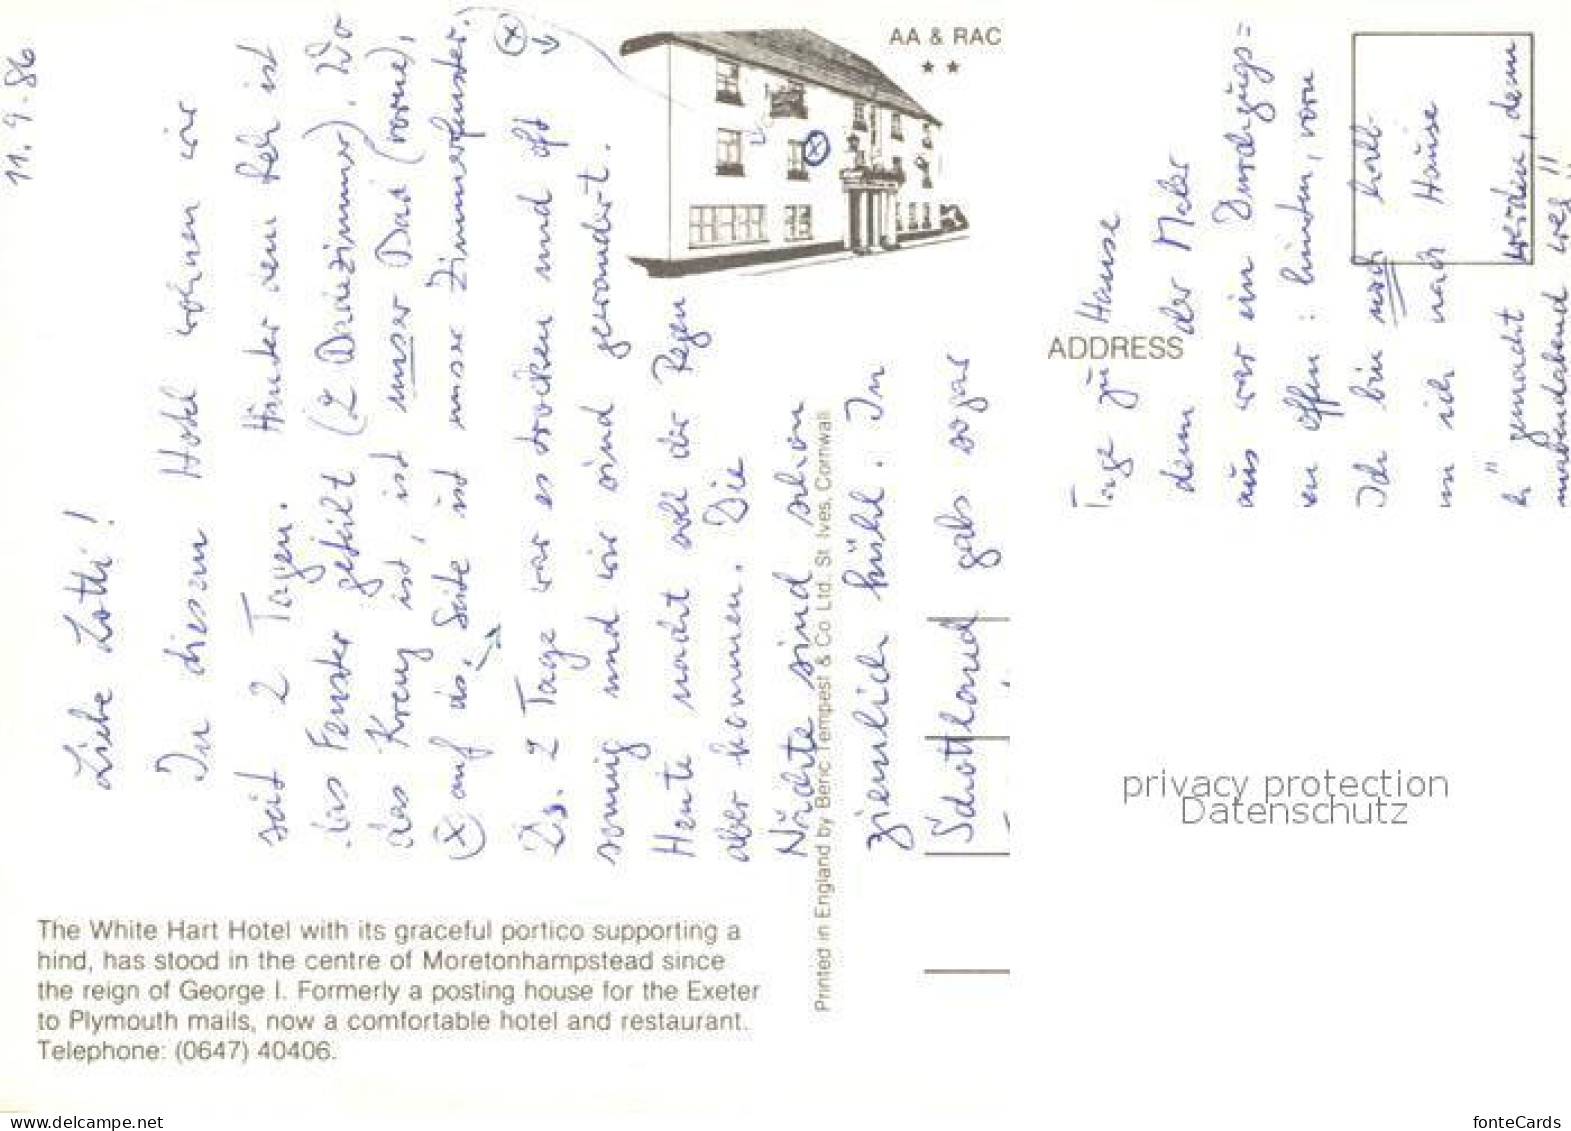 11.9.86
Liebe Lotti!
In diesem Hotel wohnen wir
seit 2 Tagen. Hinter dem Reh ist
das Fenster geteilt (2 Badezimmer). Wo
das Kreuz ist, ist unser Bad (vorne),
(x) auf ds. Seite ist unser Zimmerfenster.
(x)
Ds. 2 Tage war es trocken und oft
sonnig und wir sind gewandert.
Heute macht soll der Regen
aber kommen. Die
Nächte sind schon
ziemlich kühl. In
Schottland gabs sogar
AA & RAC
★ ★
(x)
ADDRESS
Tage zu Hause
denn der Maler
aus war ein Durchzugs=
en offen: hinten, vorn
Ich bin noch halb-
nn ich nach Hause
gemacht werden, denn
weg!!
The White Hart Hotel with its graceful portico supporting a
hind, has stood in the centre of Moretonhampstead since
the reign of George I. Formerly a posting house for the Exeter
to Plymouth mails, now a comfortable hotel and restaurant.
Telephone: (0647) 40406.
Printed in England by Beric Tempest & Co Ltd. St Ives, Cornwall
privacy protection
Datenschutz
www.ansichtskarten-center.de
fonteCards